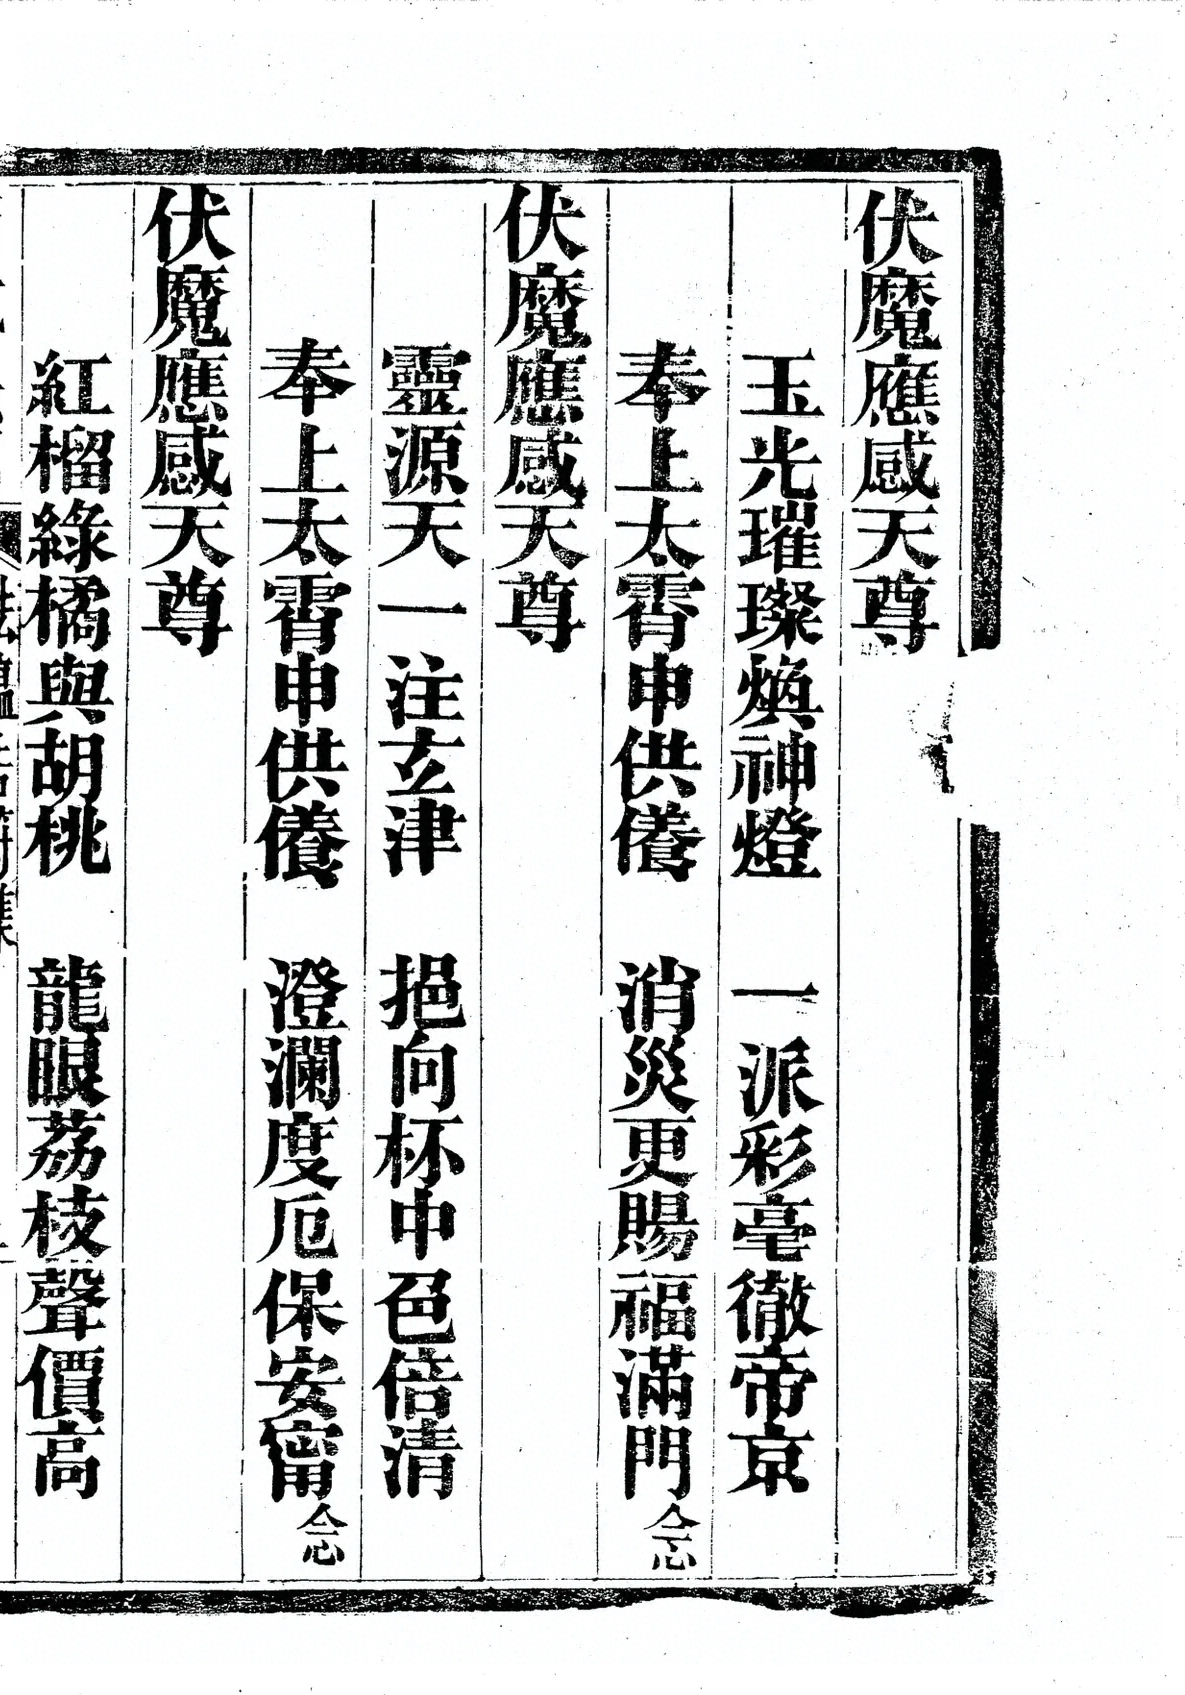 伏魔應感天尊
玉光璀璨煥神燈　一派彩毫徹帝京
奉上太霄申供養　消災更賜福滿門念
伏魔應感天尊
靈源天一注玄津　挹向杯中色倍清
奉上太霄申供養　澄瀾度厄保安甯念
伏魔應感天尊
紅榴綠橘與胡桃　龍眼荔枝聲價高